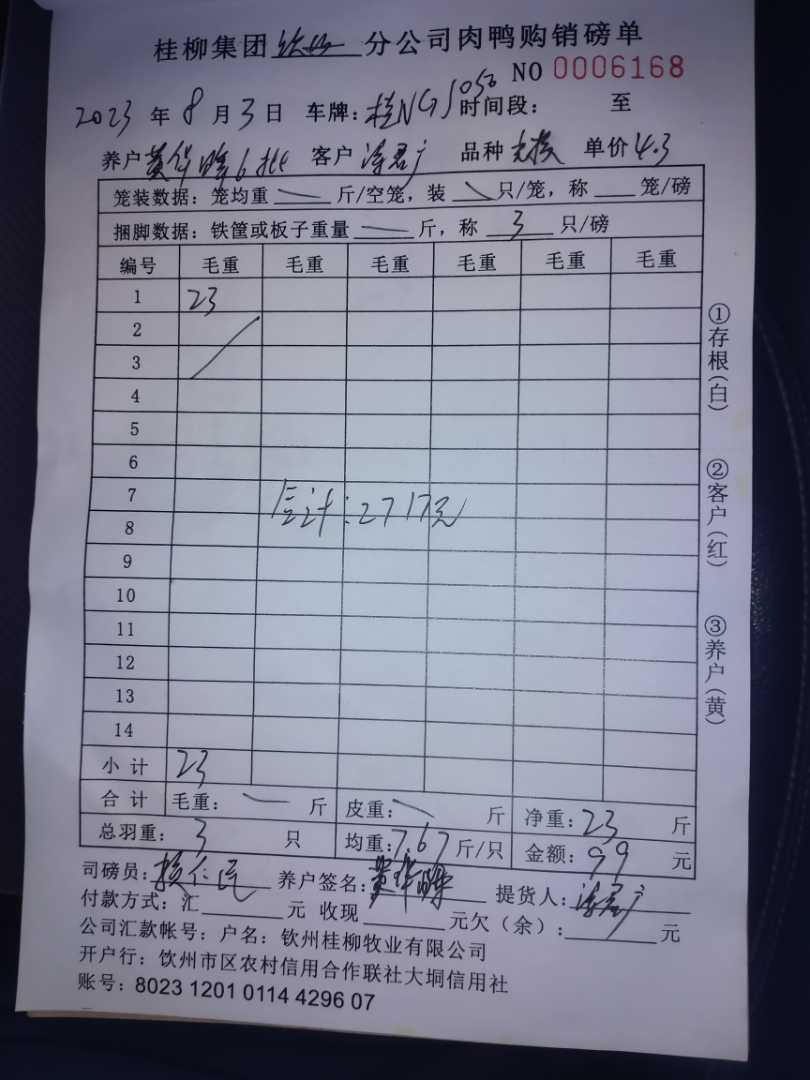 桂柳集团 钦州 分公司肉鸭购销磅单
NO 0006168
2023 年 8 月 3 日 车牌：桂NG5050 时间段： 至
养户 黄华 6批 客户 品种 单价 4.3
笼装数据：笼均重 — 斤/空笼，装 — 只/笼，称 笼/磅
捆脚数据：铁筐或板子重量 — 斤，称 3 只/磅
编号 毛重 毛重 毛重 毛重 毛重 毛重
1 23
2
3
4
5
6
7
合计：2717元
8
9
10
11
12
13
14
小计 23
合计 毛重：— 斤 皮重：— 斤 净重：23 斤
总羽重：3 只 均重：7.67 斤/只 金额：99 元
司磅员： 养户签名：黄华 提货人：
付款方式：汇 元 收现 元欠（余）： 元
公司汇款帐号：户名：钦州桂柳牧业有限公司
开户行：钦州市区农村信用合作联社大垌信用社
账号：8023 1201 0114 4296 07
①存根(白)
②客户(红)
③养户(黄)